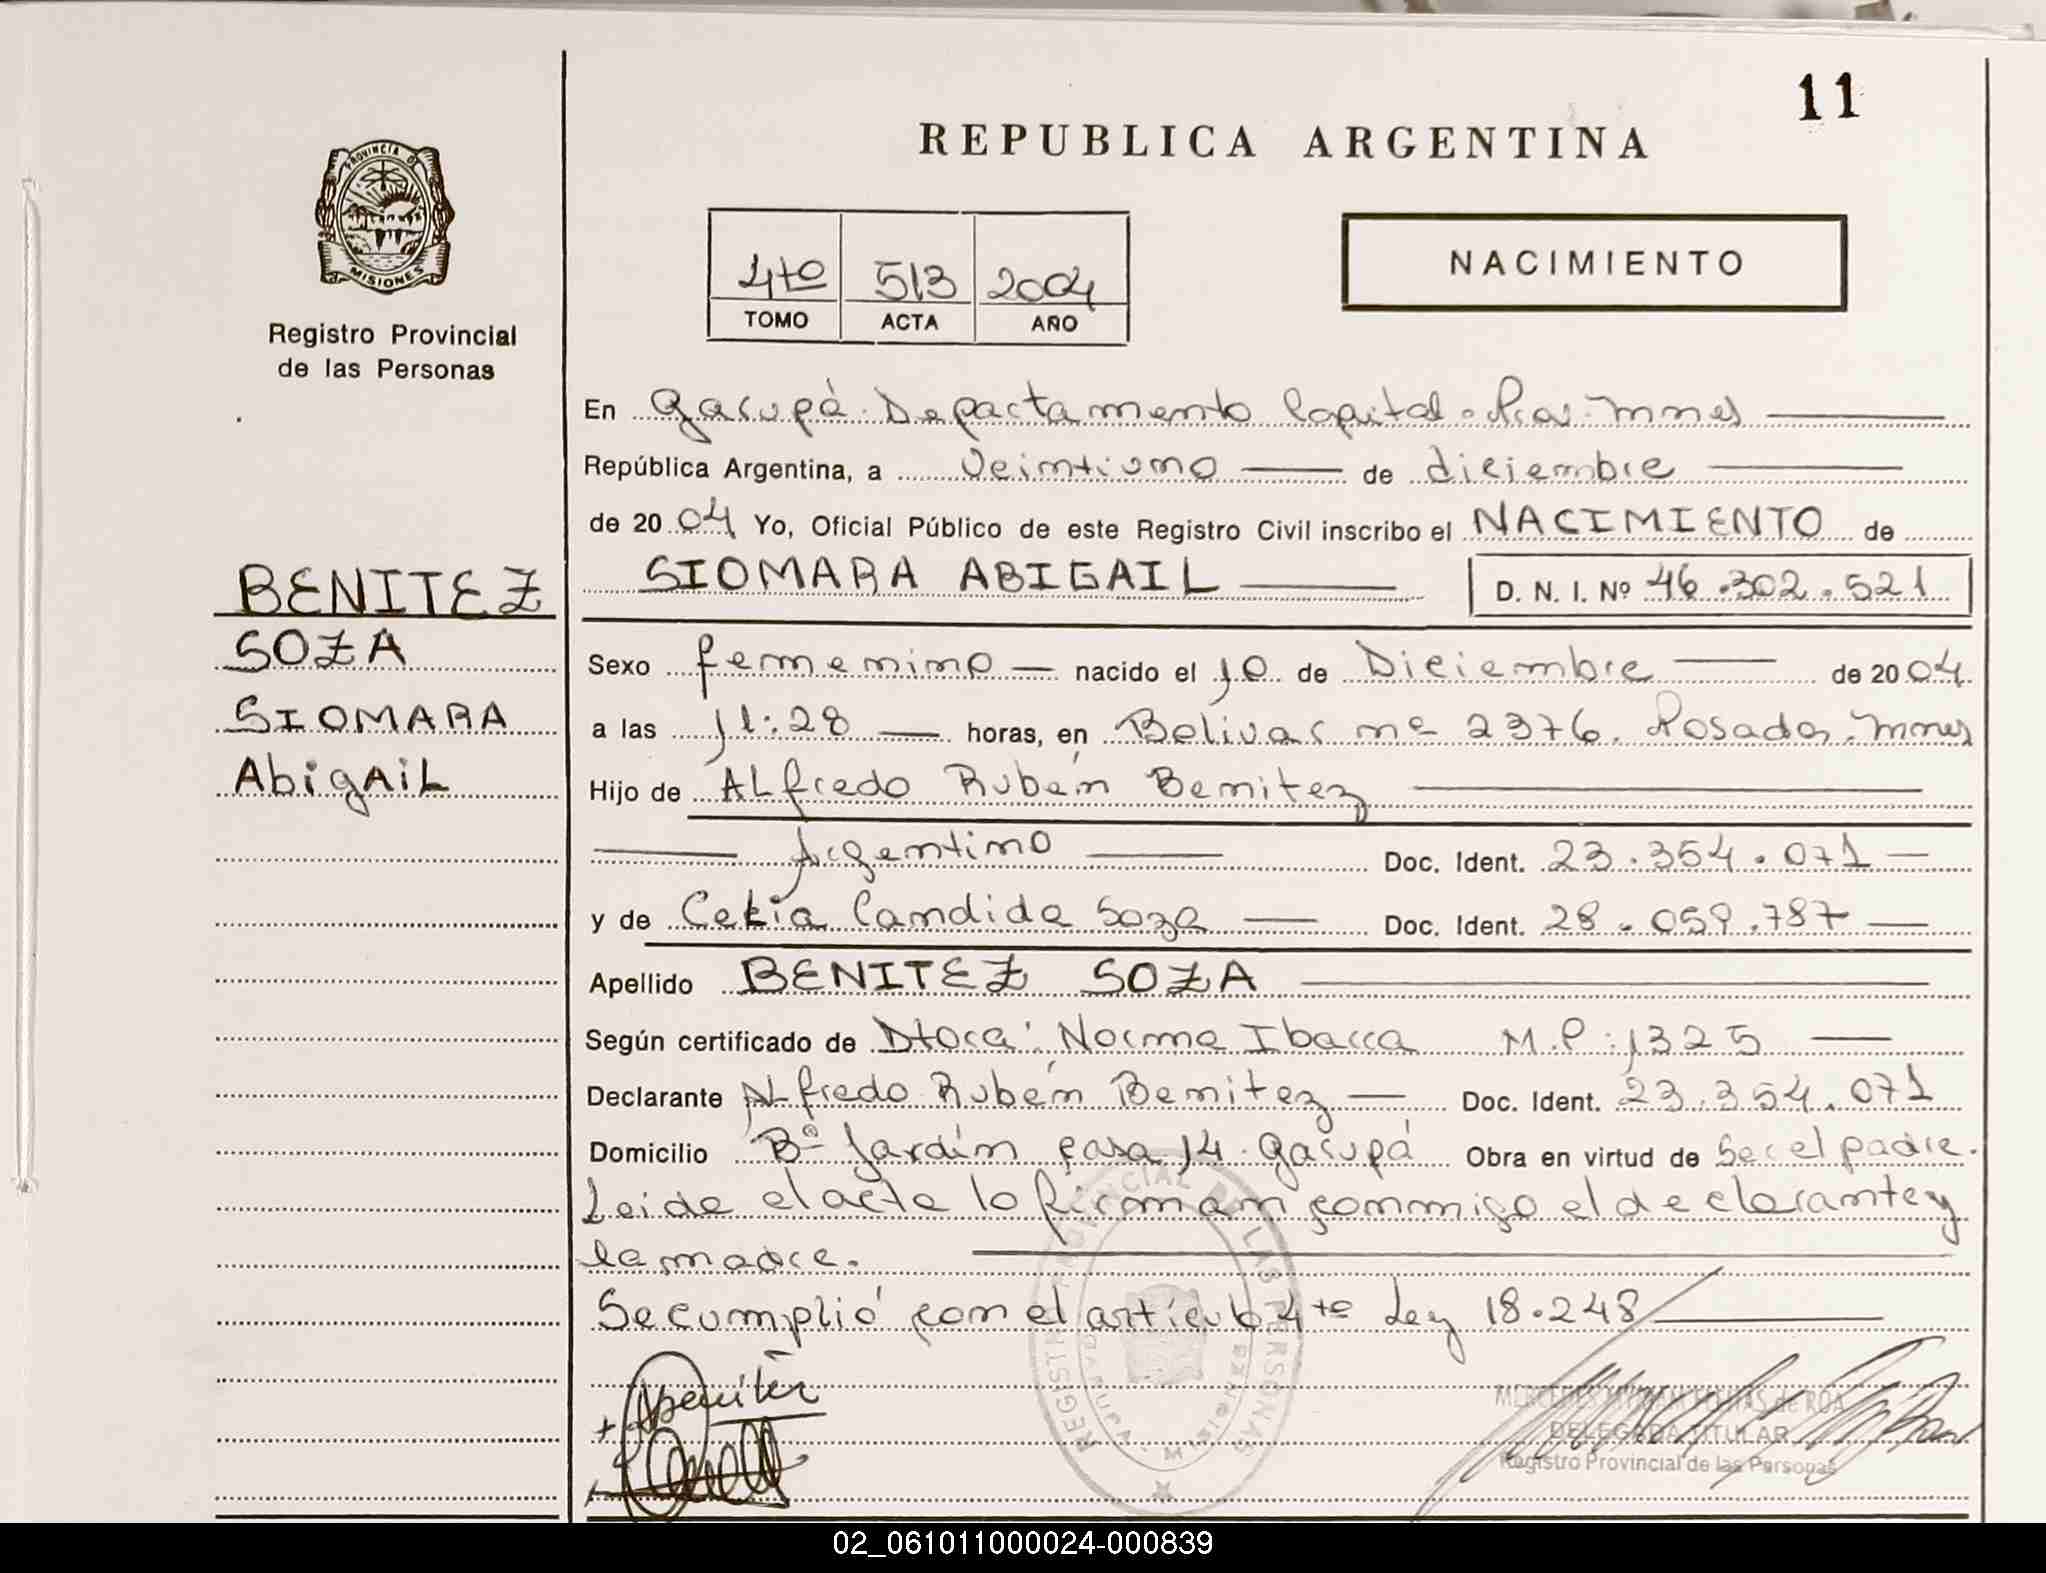 11
REPUBLICA ARGENTINA
PROVINCIA DE
MISIONES
Registro Provincial
de las Personas
4to 513 2004
TOMO ACTA AÑO
NACIMIENTO
En Garupá. Departamento Capital. Pcia. Mnes
República Argentina, a veintiuno de diciembre
de 2004 Yo, Oficial Público de este Registro Civil inscribo el NACIMIENTO de
SIOMARA ABIGAIL D. N. I. Nº 46.302.521
BENITEZ
SOZA
SIOMARA
AbigAiL
Sexo femenino nacido el 10 de Diciembre de 2004
a las 11:28 horas, en Bolivar nº 2376. Posadas. Mnes
Hijo de ALfredo Rubén Benitez
Argentino Doc. Ident. 23.354.071
y de Celia Candida Soza Doc. Ident. 28.059.787
Apellido BENITEZ SOZA
Según certificado de Dtora: Norma Ibarra M.P:1325
Declarante ALfredo Rubén Benitez Doc. Ident. 23.354.071
Domicilio Bº Jardín casa 14. Garupá Obra en virtud de Ser el padre.
Leida el acta lo firman conmigo el declarante y
la madre.
Se cumplió con el artículo 4to Ley 18.248
REGISTRO PROVINCIAL DE LAS PERSONAS
MISIONES
de ROA
DELEGADA TITULAR
Registro Provincial de las Personas
02_061011000024-000839